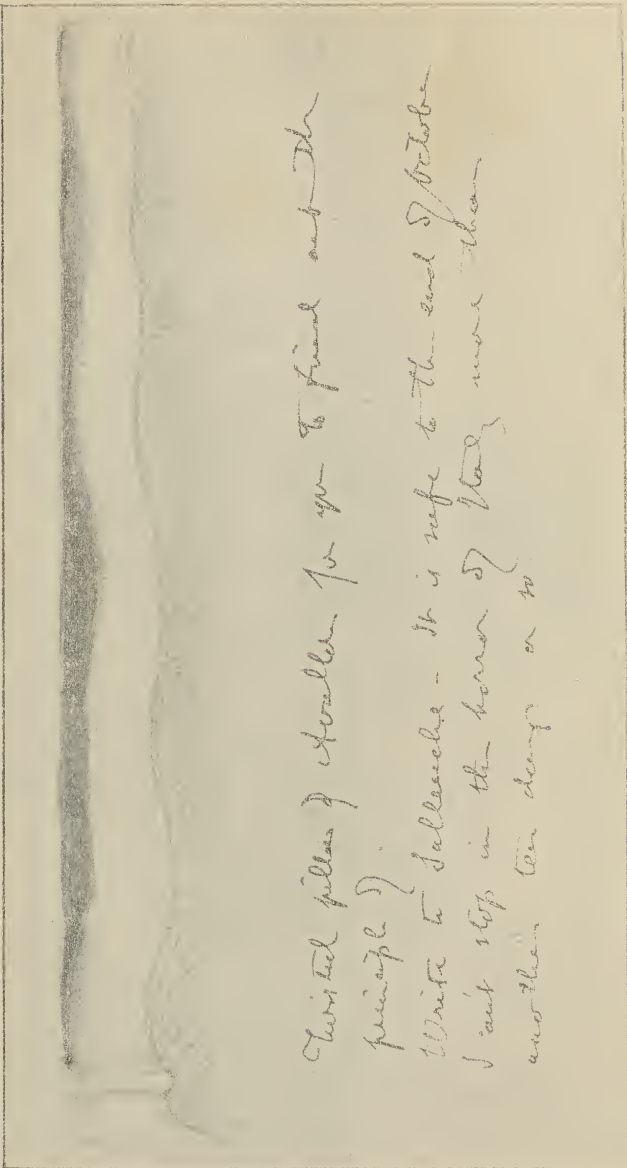 Twisted pillars of Avallon for you to find out the
principle of.
Write to Sallenche - It is safe to the end of October
I can't stop in the horror of Italy more than
another ten days or so